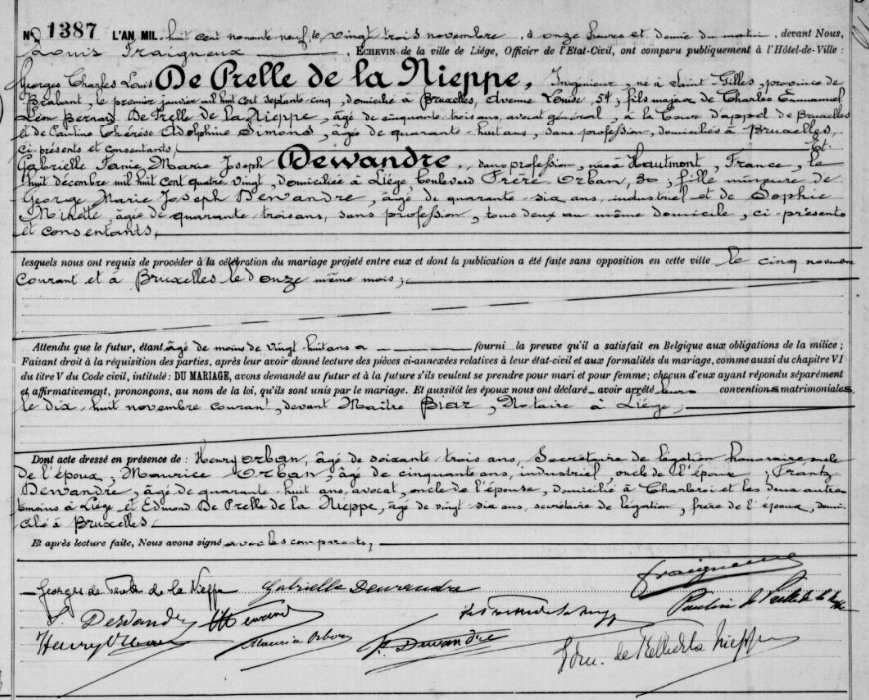 No 1387 L'AN MIL huit cent nonante neuf, le vingt trois novembre, à onze heures et demie du matin, devant Nous,
Louis Fraigneux, ECHEVIN de la ville de Liége, Officier de l'Etat-Civil, ont comparu publiquement à l'Hôtel-de-Ville :
Georges Charles Louis De Prelle de la Nieppe, Ingénieur, né à Saint Gilles, province de
Brabant, le premier janvier mil huit cent septante-cinq, domicilié à Bruxelles, Avenue Louise, 54, fils majeur de Charles Emmanuel
Léon Bernard De Prelle de la Nieppe, âgé de cinquante trois ans, avocat général, à la Cour d'appel de Bruxelles
et de Pauline Thérèse Adolphine Simons, âgée de quarante-huit ans, sans profession, domiciliés à Bruxelles,
ci-présents et consentants, Et
Gabrielle Fanie Marie Joseph Dewandre, sans profession, née à Hautmont, France, le
huit décembre mil huit cent quatre vingt, domiciliée à Liége, boulevard Frère Orban, 30, fille mineure de
George Marie Joseph Dewandre, âgé de quarante-six ans, industriel et de Sophie
âgée de quarante-trois ans, sans profession, tous deux au même domicile, ci-présents
et consentants,
lesquels nous ont requis de procéder à la célébration du mariage projeté entre eux et dont la publication a été faite sans opposition en cette ville le cinq novembre
courant et à Bruxelles le onze même mois;
Attendu que le futur, étant âgé de moins de vingt huit ans a fourni la preuve qu'il a satisfait en Belgique aux obligations de la milice ;
Faisant droit à la réquisition des parties, après leur avoir donné lecture des pièces ci-annexées relatives à leur état-civil et aux formalités du mariage, comme aussi du chapitre VI
du titre V du Code civil, intitulé : DU MARIAGE, avons demandé au futur et à la future s'ils veulent se prendre pour mari et pour femme; chacun d'eux ayant répondu séparément
et affirmativement, prononçons, au nom de la loi, qu'ils sont unis par le mariage. Et aussitôt les époux nous ont déclaré avoir arrêté leurs conventions matrimoniales
le dix-huit novembre courant, devant Maître Biar, Notaire à Liége;
Dont acte dressé en présence de : Henry Orban, âgé de soixante trois ans, Secrétaire de légation honoraire, oncle
de l'époux, Maurice Orban, âgé de cinquante ans, industriel, oncle de l'épouse, Frantz
Dewandre, âgé de quarante-huit ans, avocat, oncle de l'épouse, domicilié à Charleroi et les deux autres
témoins à Liége et Edmond De Prelle de la Nieppe, âgé de vingt-six ans, secrétaire de légation, frère de l'époux, domi-
cilié à Bruxelles,
Et après lecture faite, Nous avons signé avec les comparants,
Georges de Prelle de la Nieppe Gabrielle Dewandre Fraigneux
S. Dewandre Pauline de Prelle de la Nieppe
Henry Orban Maurice Orban F. Dewandre Edm. de Prelle de la Nieppe